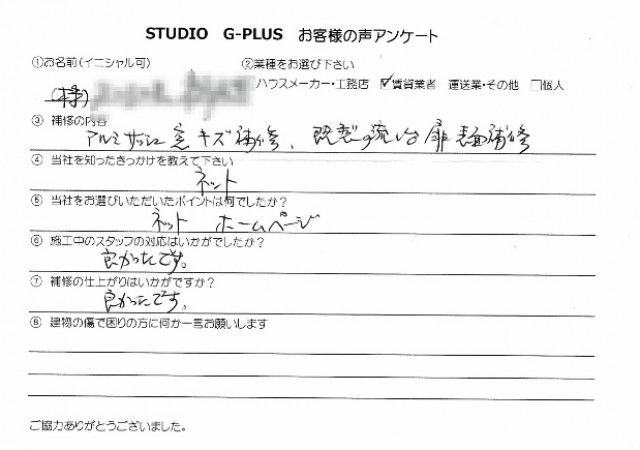 STUDIO G-PLUS お客様の声アンケート
①お名前(イニシャル可) ②業種をお選び下さい
(様) ハウスメーカー・工務店 ☑賃貸業者 運送業・その他 □個人
③ 補修の内容
アルミサッシ窓キズ補修、既製の流し台扉表面補修
④ 当社を知ったきっかけを教えて下さい
ネット
⑤ 当社をお選びいただいたポイントは何でしたか?
ネット ホームページ
⑥ 施工中のスタッフの対応はいかがでしたか?
良かったです。
⑦ 補修の仕上がりはいかがですか?
良かったです。
⑧ 建物の傷で困りの方に何か一言お願いします
ご協力ありがとうございました。